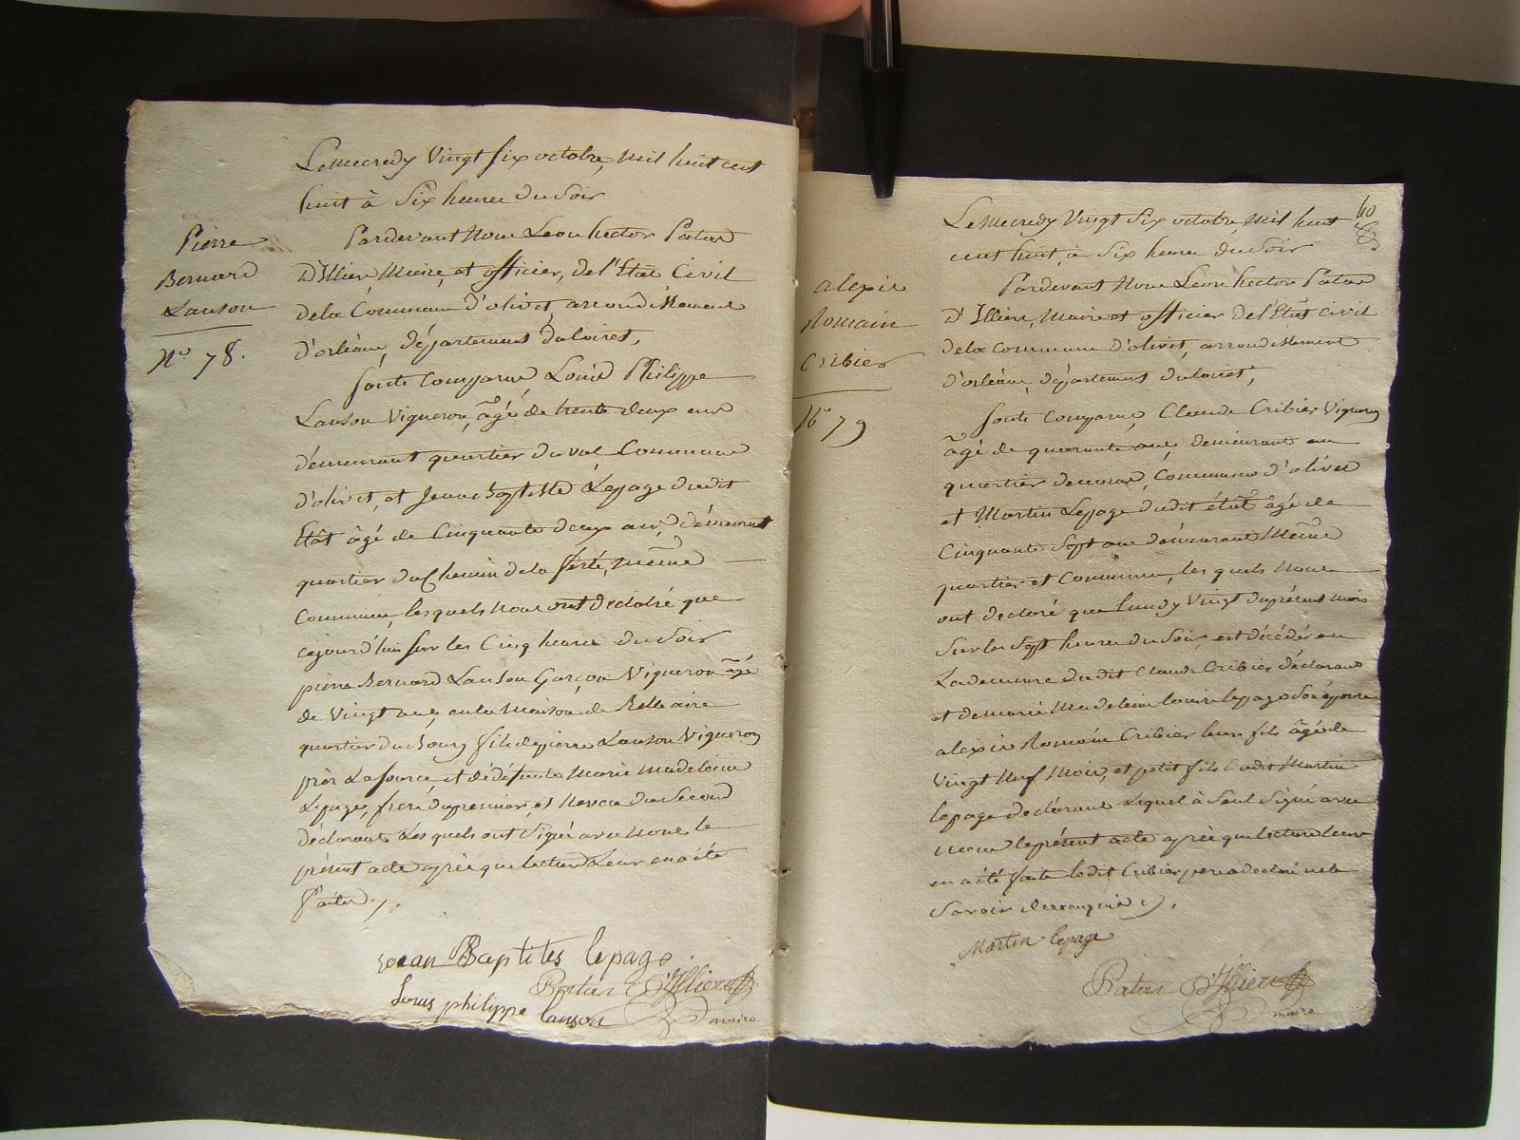 Pierre
Bernard
Lanson
No 78.
Le mecredy Vingt six octobre, mil huit cent
huit à Six heures du Soir
Pardevant Nous Leon hector Patas
D'Illiers Maire, et officier, de l'Etat Civil
dela Commune d'olivet, arrondissement
d'orléans, département du loiret,
Sont Comparus Louis Philippe
Lanson Vigneron, âgé de trente deux ans
démeurant quartier du val Commune
d'olivet, et Jean Baptiste Lepage dudit
Etât âgé de Cinquante deux ans, démeurant
quartier du Chemin de la ferté, même
Commune, lesquels Nous ont declaré que
cejourd'hui sur les Cinq heures du Soir
pierre Bernard Lanson Garçon Vigneron âgé
de Vingt ans, en la Maison de Bellaire
quartier du bourg fils de pierre Lanson Vigneron
près La Source et de défunte Marie madeleine
Lepage, frere du premier, et Neveu du Second
declarants Lesquels ont Signé avec Nous le
présent acte après que lecture Leur en a été
faite ./.
Jean Baptites lepage
Patas D'Illiers
Louis philippe lanson
maire
60
alexis
Romain
Cribier
No 79
Le Mecredy Vingt Six octobre, Mil huit
cent huit, à Six heures du Soir
Pardevant Nous Leon hector Patas
D'Illiers, Maire et officier de l'Etat civil
dela Commune d'olivet, arrondissement
d'orléans, département du loiret,
Sont Comparus, Claude Cribier Vigneron
âgé de quarante ans, demeurant au
quartier Commune d'olivet
et Martin Lepage dudit état âgé de
Cinquante Sept ans démeurant Même
quartier et Commune, lesquels Nous
ont declaré que lundy Vingt du présent mois
Sur les Sept heures du Soir, est décédé en
La demeure dudit Claude Cribier déclarant
et de Marie Madeleine louise lepage Son épouse
alexis Romain Cribier leur fils âgé de
Vingt Neuf Mois, et petit fils dudit Martin
lepage declarant Lequel à Seul Signé avec
nous le présent acte après que lecture leur
en a été faite ledit Cribier pere a declaré ne le
Savoir de ce enquis ./.
Martin lepage
Patas D'Illiers
maire